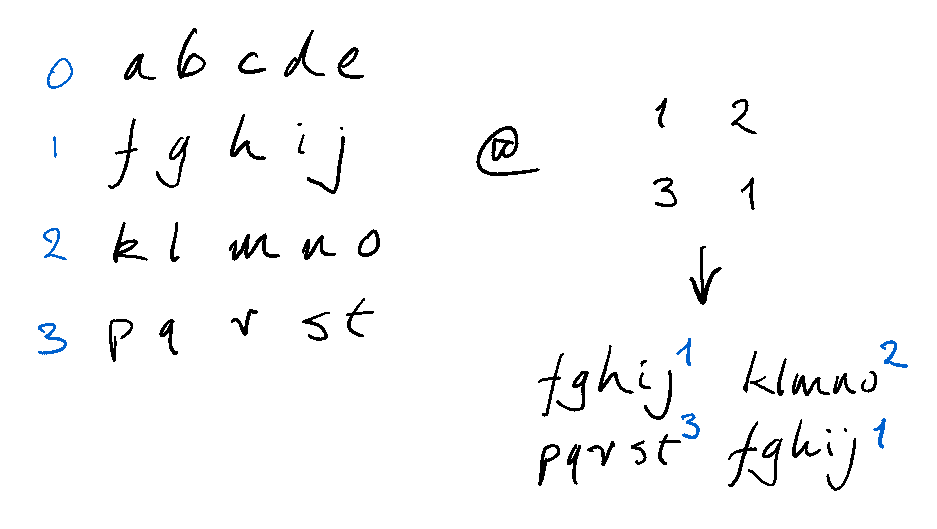 0 a b c d e
1 f g h i j
2 k l m n o
3 p q r s t
@
1 2
3 1
↓
fghij¹ klmno²
pqrst³ fghij¹